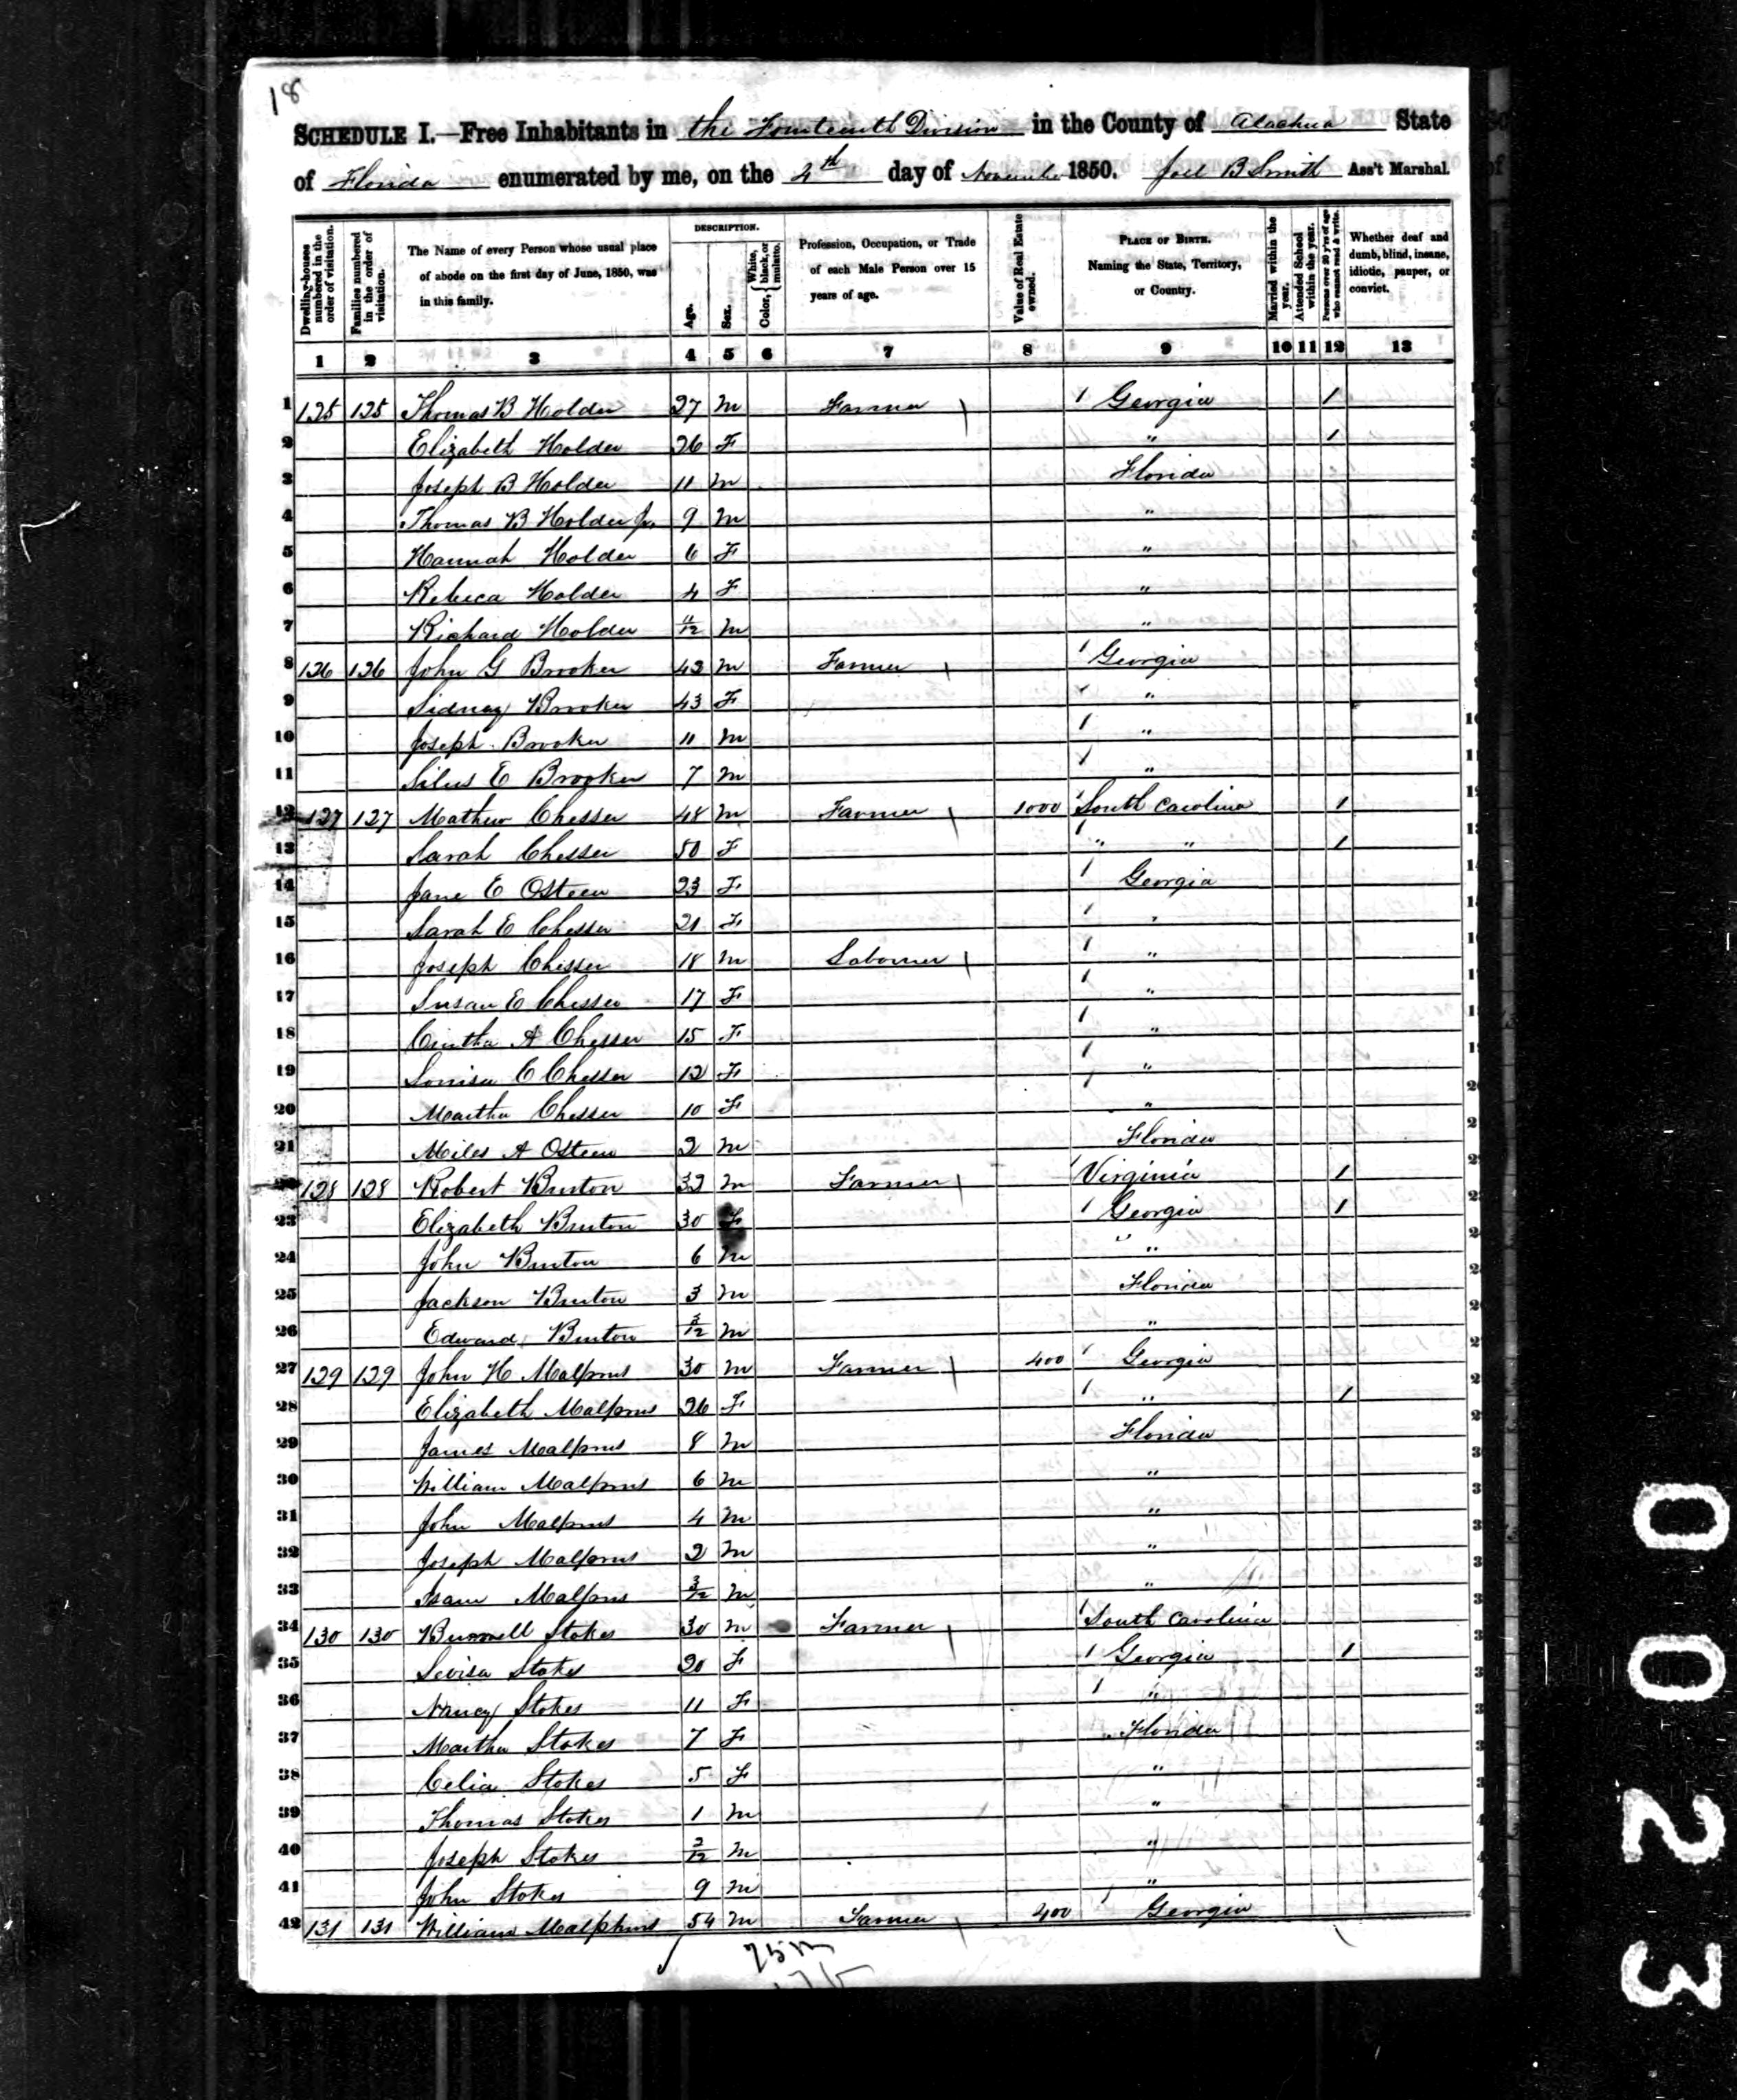 18
SCHEDULE I.—Free Inhabitants in the Fourteenth Division in the County of Alachua State
of Florida enumerated by me, on the 4th day of November 1850. Joel B Smith Ass't Marshal.
Dwelling-houses numbered in the order of visitation. Families numbered in the order of visitation. The Name of every Person whose usual place of abode on the first day of June, 1850, was in this family. DESCRIPTION. Age. Sex. Color, { White, black, or mulatto. Profession, Occupation, or Trade of each Male Person over 15 years of age. Value of Real Estate owned. PLACE OF BIRTH. Naming the State, Territory, or Country. Married within the year. Attended School within the year. Persons over 20 y'rs of age who cannot read & write. Whether deaf and dumb, blind, insane, idiotic, pauper, or convict.
1 2 3 4 5 6 7 8 9 10 11 12 13
1 125 125 Thomas B Holder 27 m Farmer 1 Georgia 1
2 Elizabeth Holder 26 F " 1
3 Joseph B Holder 11 m Florida
4 Thomas B Holder Jr. 9 m "
5 Hannah Holder 6 F "
6 Rebeca Holder 4 F "
7 Richard Holder 11/12 m "
8 126 126 John G Brooker 42 m Farmer 1 Georgia
9 Sidney Brooker 43 F "
10 Joseph Brooker 11 m 1 "
11 Silus E Brooker 7 m 1 "
12 127 127 Mathew Chesser 48 m Farmer 1000 South Carolina 1
13 Sarah Chesser 50 F 1 " " 1
14 Jane E Osteen 23 F 1 Georgia
15 Sarah E Chesser 21 F 1 "
16 Joseph Chesser 18 m Laborer 1 "
17 Susan E Chesser 17 F 1 "
18 Cintha A Chesser 15 F 1 "
19 Louisa C Chesser 12 F 1 "
20 Martha Chesser 10 F 1 "
21 Miles A Osteen 2 m Florida
22 128 128 Robert Bruton 32 m Farmer 1 Virginia 1
23 Elizabeth Bruton 30 F 1 Georgia 1
24 John Bruton 6 m "
25 Jackson Bruton 3 m Florida
26 Edward Bruton m "
27 129 129 John H Malprus 30 m Farmer 400 1 Georgia
28 Elizabeth Malprus 26 F 1 " 1
29 James Malprus 8 m Florida
30 William Malprus 6 m "
31 John Malprus 4 m "
32 Joseph Malprus 2 m "
33 Isam Malprus 3/12 m "
34 130 130 Burrell Stokes 30 m Farmer 1 South Carolina
35 Levisa Stokes 20 F 1 Georgia 1
36 Nancy Stokes 11 F 1 "
37 Martha Stokes 7 F Florida
38 Celia Stokes 5 F "
39 Thomas Stokes 1 m "
40 Joseph Stokes 2/12 m "
41 John Stokes 9 m "
42 131 131 William Malphrus 54 m Farmer 400 1 Georgia
25 m
0023